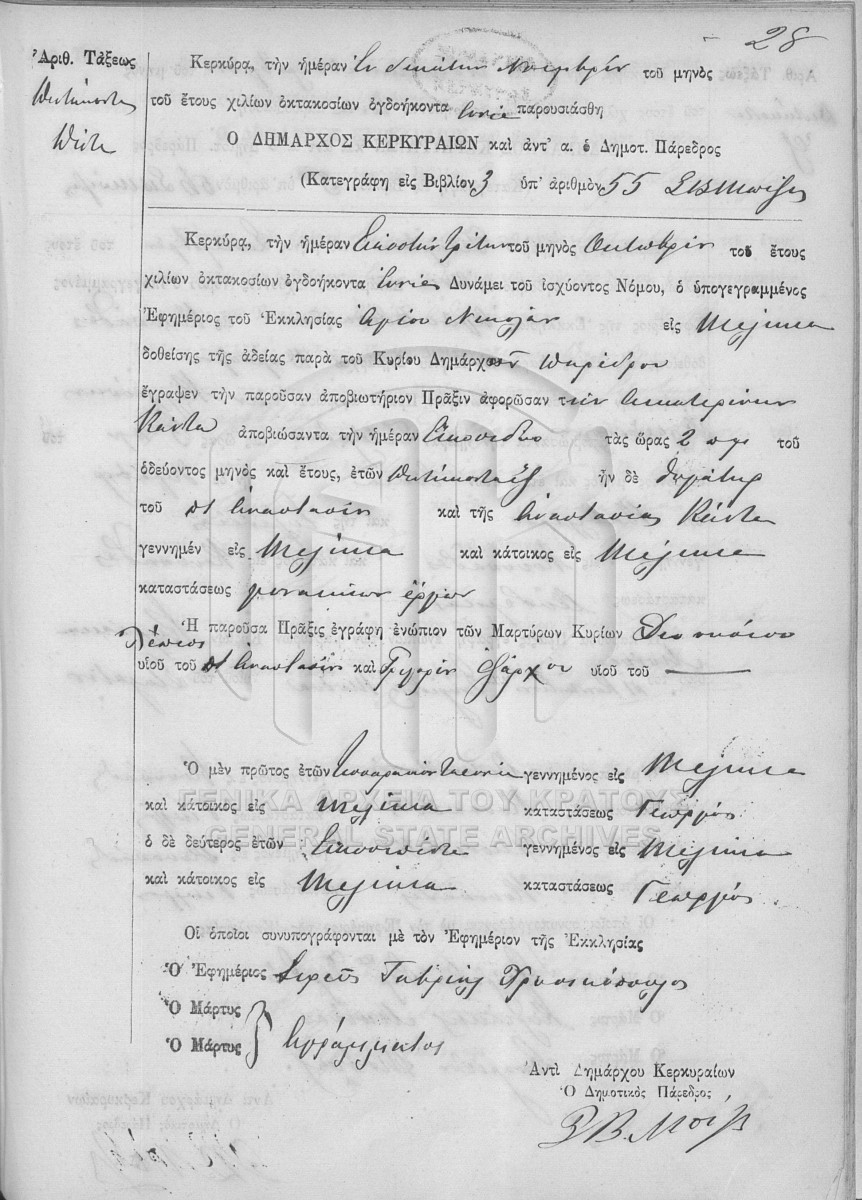 28
Ἀριθ. Τάξεως
Πεντήκοντα
Πέντε
Κερκύρᾳ, τὴν ἡμέραν Νοεμβρίου τοῦ μηνὸς
τοῦ ἔτους χιλίων ὀκτακοσίων ὀγδοήκοντα ἐννέα παρουσιάσθη
Ὁ ΔΗΜΑΡΧΟΣ ΚΕΡΚΥΡΑΙΩΝ καὶ ἀντ' α. ὁ Δημοτ. Πάρεδρος
(Κατεγράφη εἰς Βιβλίον 3 ὑπ' ἀριθμὸν 55
Κερκύρᾳ, τὴν ἡμέραν Εἰκοστὴν τρίτην τοῦ μηνὸς Ὀκτωβρίου τοῦ ἔτους
χιλίων ὀκτακοσίων ὀγδοήκοντα ἐννέα Δυνάμει τοῦ ἰσχύοντος Νόμου, ὁ ὑπογεγραμμένος
Ἐφημέριος τοῦ Ἐκκλησίας Ἁγίου Νικολάου εἰς Μελίκια
δοθείσης τῆς ἀδείας παρὰ τοῦ Κυρίου Δημάρχου Παρέδρου
ἔγραψεν τὴν παροῦσαν ἀποβιωτήριον Πρᾶξιν ἀφορῶσαν τὴν Αἰκατερίνην
Κάντα ἀποβιώσαντα τὴν ἡμέραν Εἰκοσιδύο τὰς ὥρας 2 π μ τοῦ
ὁδεύοντος μηνὸς καὶ ἔτους, ἐτῶν Πεντήκοντα ἓξ ἦν δὲ θυγάτηρ
τοῦ πτ Ἀναστασίου καὶ τῆς Ἀναστασίας Κάντα
γεννημέν εἰς Μελίκια καὶ κάτοικος εἰς Μελίκια
καταστάσεως γυναικείων ἔργων
Ἡ παροῦσα Πρᾶξις ἐγράφη ἐνώπιον τῶν Μαρτύρων Κυρίων
υἱοῦ τοῦ πτ Ἀναστασίου καὶ Γρηγορίου Ἐξάρχου υἱοῦ τοῦ —
Ὁ μὲν πρῶτος ἐτῶν Τεσσαρακονταεννέα γεννημένος εἰς Μελίκια
καὶ κάτοικος εἰς Μελίκια καταστάσεως Γεωργός
ὁ δὲ δεύτερος ἐτῶν Εἰκοσιπέντε γεννημένος εἰς Μελίκια
καὶ κάτοικος εἰς Μελίκια καταστάσεως Γεωργός
Οἱ ὁποῖοι συνυπογράφονται μὲ τὸν Ἐφημέριον τῆς Ἐκκλησίας
Ὁ Ἐφημέριος Ἱερεὺς Γαβριὴλ
Ὁ Μάρτυς
Ὁ Μάρτυς } Ἀγράμματος
Ἀντὶ Δημάρχου Κερκυραίων
Ὁ Δημοτικὸς Πάρεδρος
ΓΕΝΙΚΑ ΑΡΧΕΙΑ ΤΟΥ ΚΡΑΤΟΥΣ
GENERAL STATE ARCHIVES